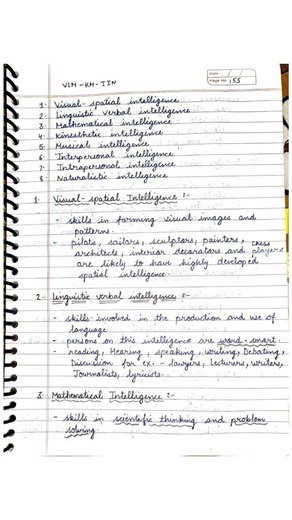 Date / /
Page No. 155
VLM - KM - IIN
1. Visual-spatial intelligence
2. Linguistic verbal intelligence
3. Mathematical intelligence
4. Kinesthetic intelligence
5. Musical intelligence
6. Interpersonal intelligence
7. Intrapersonal intelligence
8. Naturalistic intelligence
1. Visual-spatial Intelligence :-
- skills in forming visual images and
patterns.
- pilots, sailors, sculptors, painters, chess
architects, interior decorators and players
are likely to have highly developed
spatial intelligence
2. Linguistic verbal intelligence :-
- skills involved in the production and use of
language
- persons on this intelligence are word-smart.
- reading, Hearing, speaking, writing, Debating,
Discussion for ex. - lawyers, lecturers, writers,
Journalists, lyricists.
3. Mathematical Intelligence :-
- skills in scientific thinking and problem
solving.